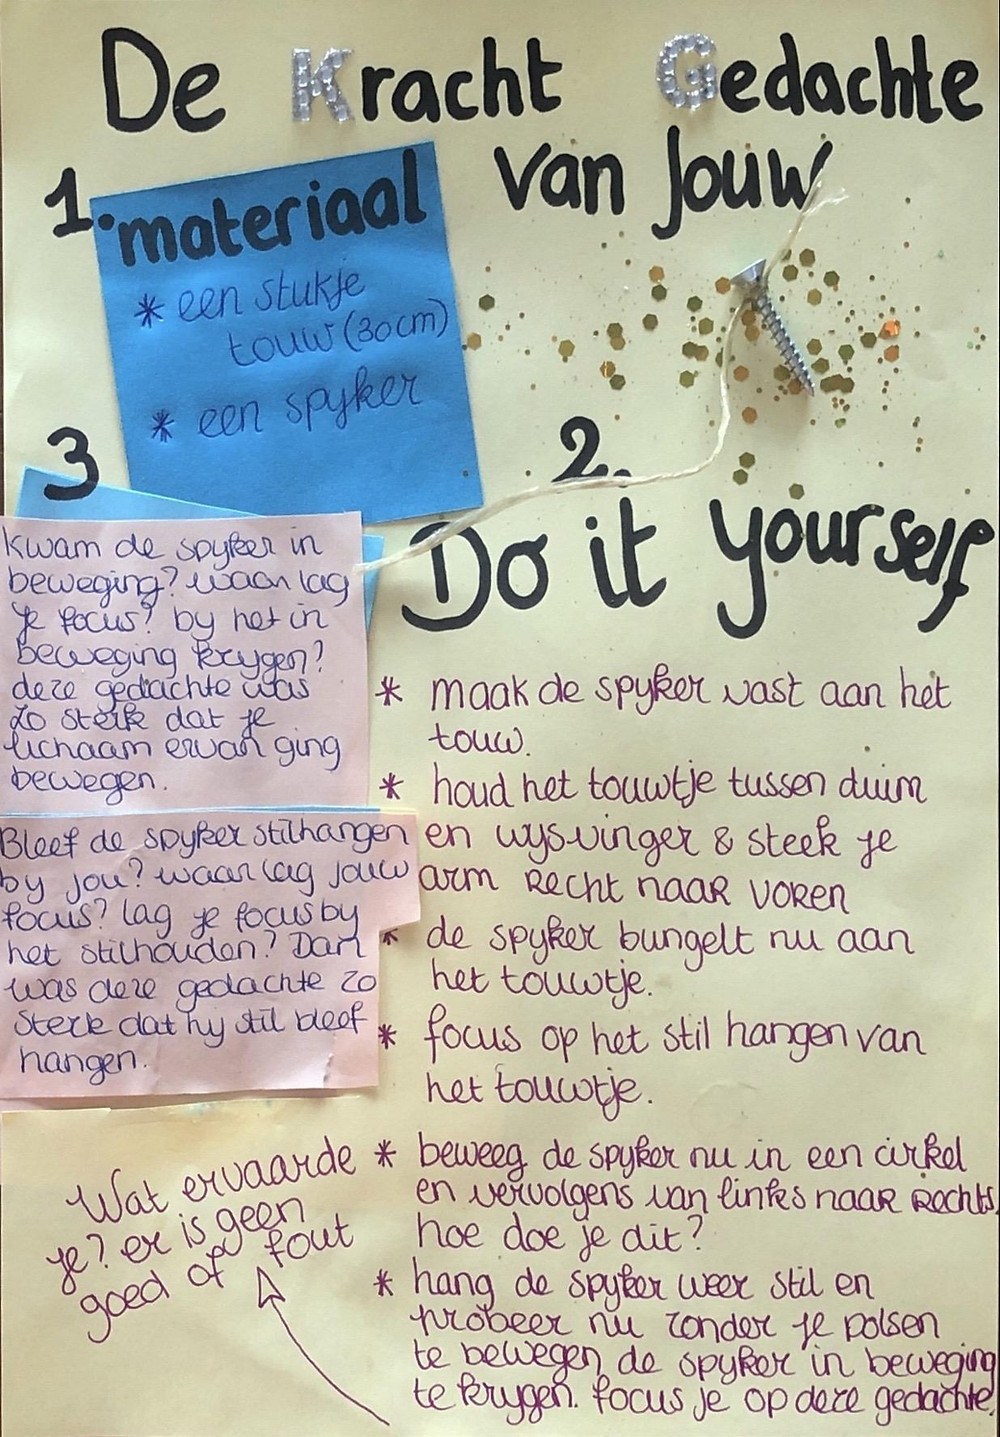 De Kracht Gedachte
van Jouw
1.
materiaal
* een stukje
touw (30cm)
* een spyker
2.
Do it yourself
* maak de spyker vast aan het
touw.
* houd het touwtje tussen duim
en wysvinger & steek je
arm recht naar voren
* de spyker bungelt nu aan
het touwtje.
* focus op het stil hangen van
het touwtje.
* beweeg de spyker nu in een cirkel
en vervolgens van links naar rechts,
hoe doe je dit?
* hang de spyker weer stil en
probeer nu zonder je polsen
te bewegen, de spyker in beweging
te krygen. focus je op deze gedachte.
3
Kwam de spyker in
beweging? waar lag
je focus? by het in
beweging krygen?
deze gedachte was
zo sterk dat je
lichaam ervan ging
bewegen.
Bleef de spyker stilhangen
by jou? waar lag jouw
focus? lag je focus by
het stilhouden? Dan
was deze gedachte zo
sterk dat hy stil bleef
hangen.
Wat ervaarde
je? er is geen
goed of fout